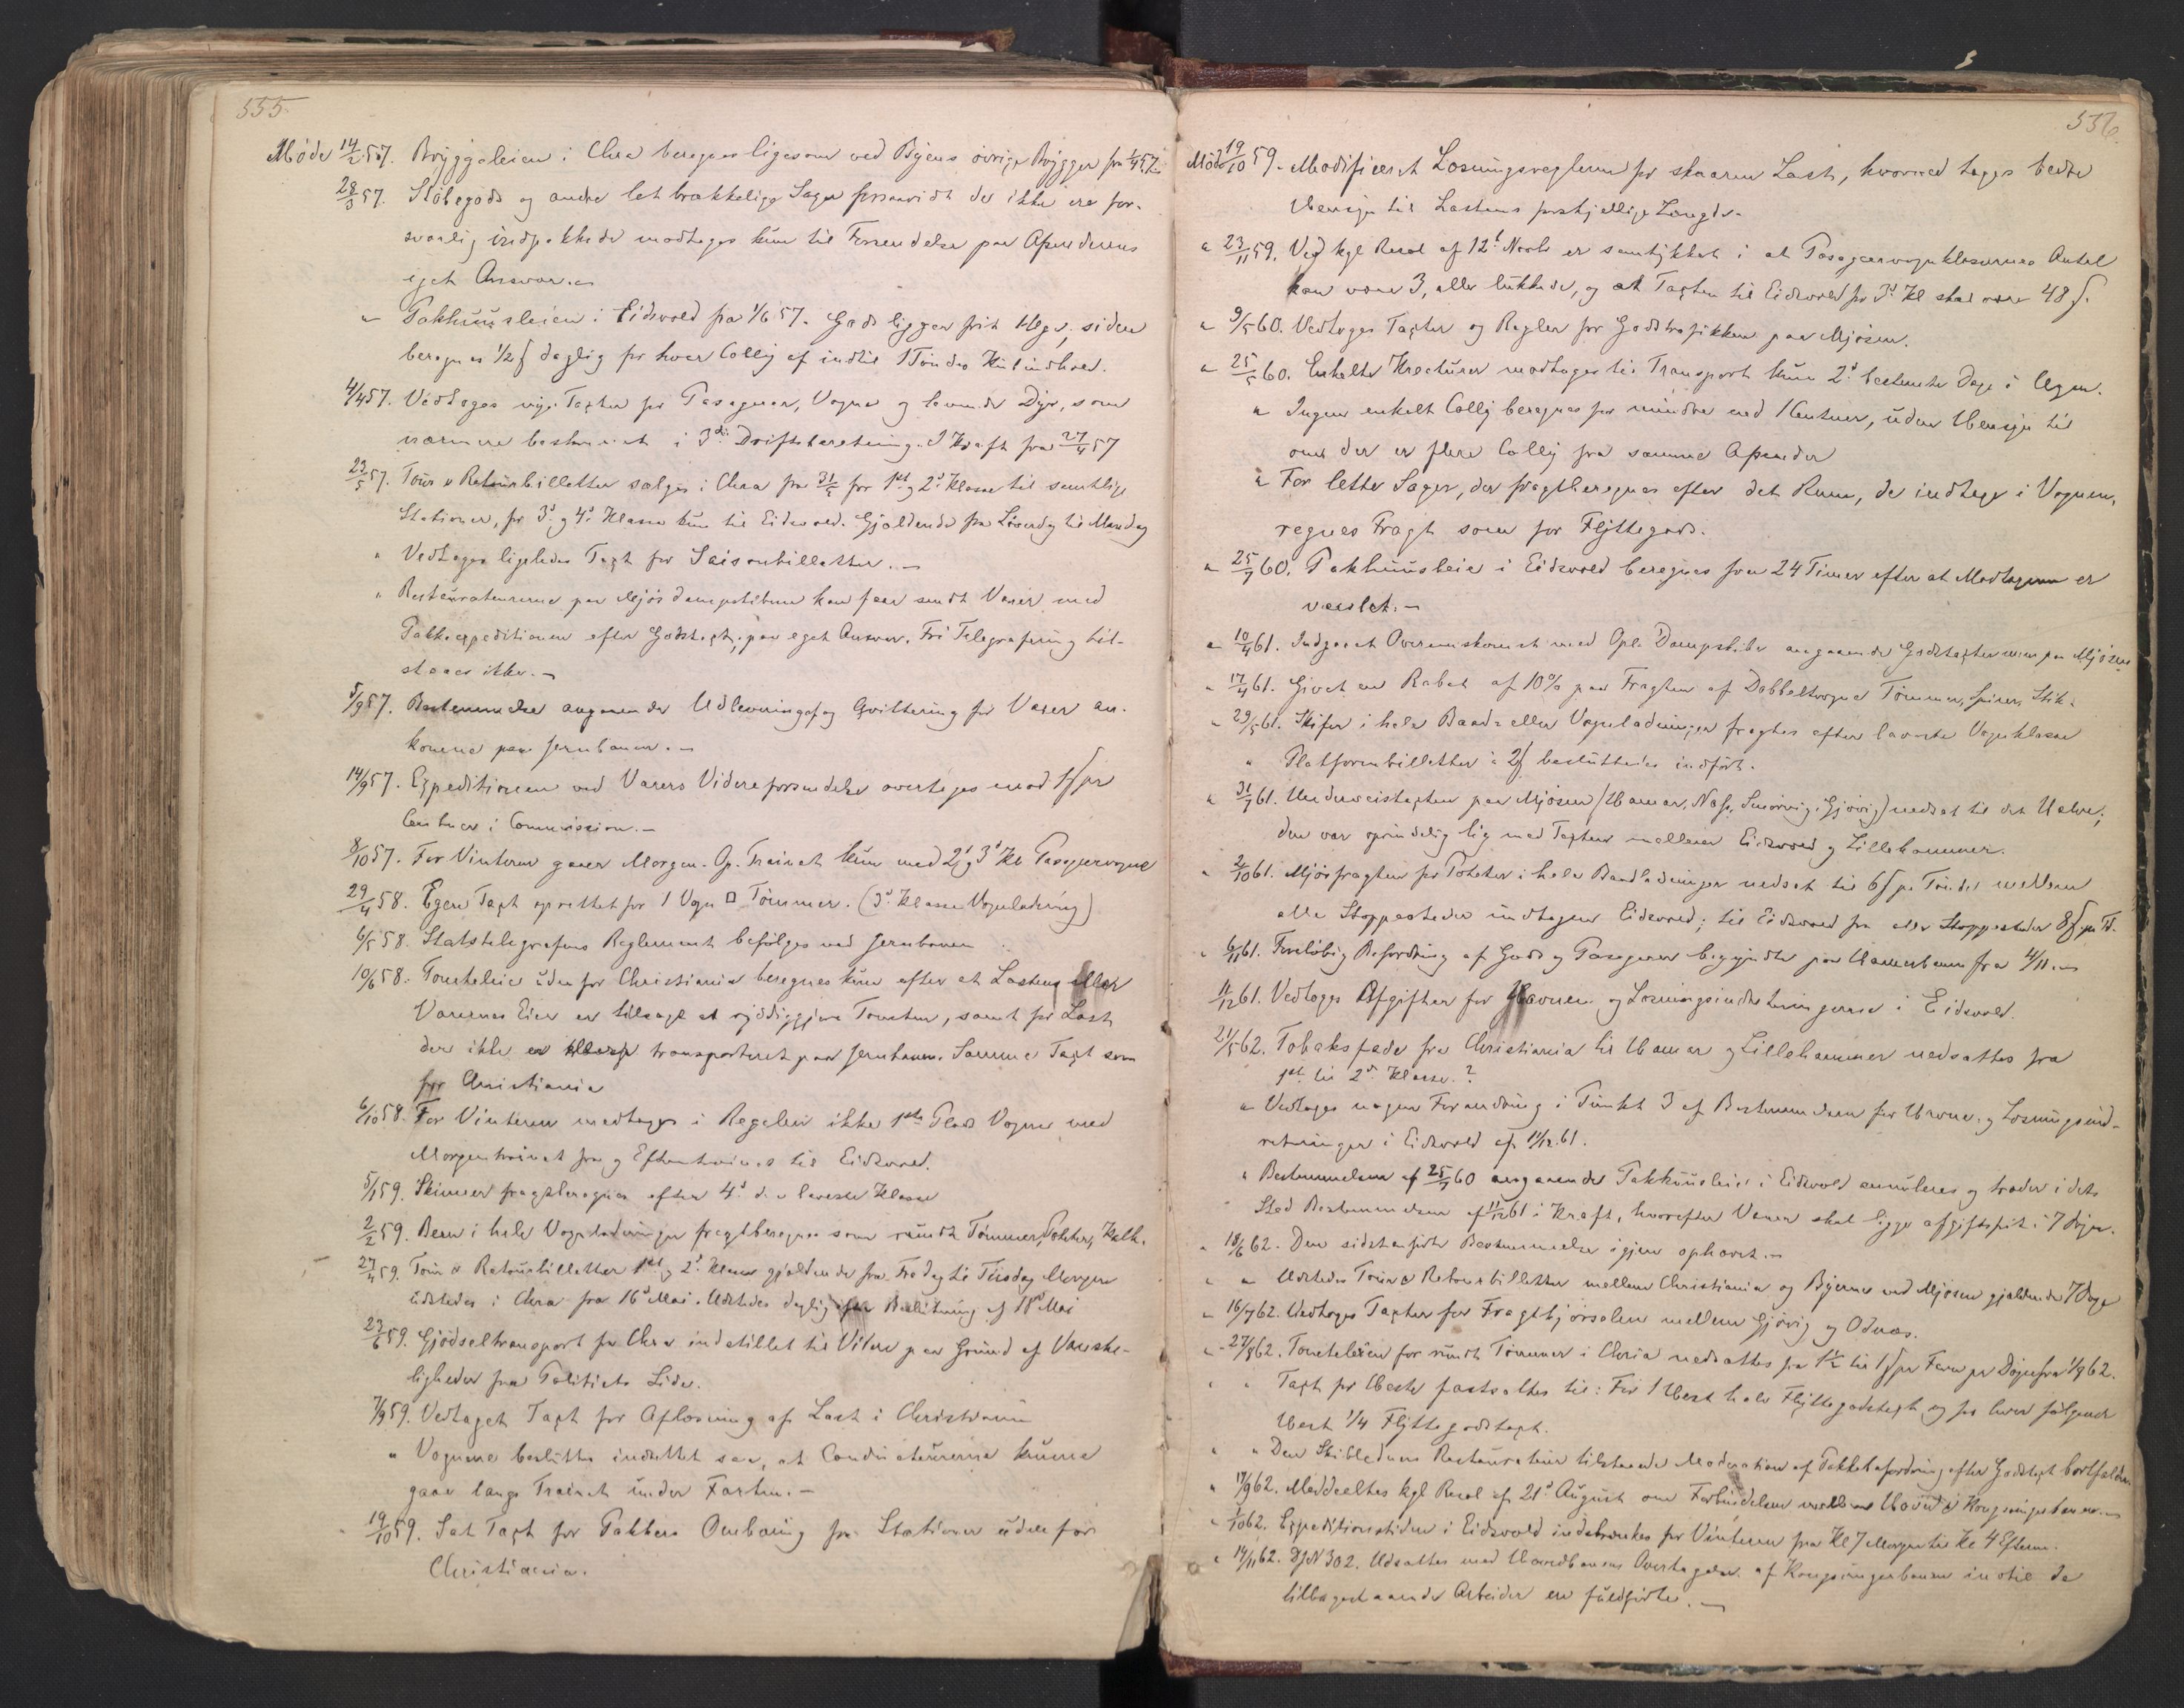 555.
Möde 14/2 57. Bryggeleien i Chra beregnes ligesom ved Byens øvrige Brygger fra 1/4 57.
28/3 57. Støbegods og andre let brækkelige Sager forsaavidt de ikke ere for-
svarlig indpakkede modtages kun til Forsendelse paa Afsenderens
eget Ansvar.
" Pakhuusleien i Eidsvold fra 1/6 57. Gods ligger frit 1 Uge, siden
beregnes 1/2 ß daglig for hver Colly af indtil 1 Töndes Kubindhold.
4/4 57. Vedtoges nye Taxter for Passagerer, Vogne og levende Dyr, som
nærmere bestemt i 3die Driftsberetning. I Kraft fra 27/4 57
23/5 57. Tour & Retourbilletter sælges i Chra fra 31/5 for 1ste og 2d Klasse til samtlige
Stationer, for 3d og 4d Klasse kun til Eidsvold. Gjældende fra Löverdag til Mandag
" Vedtoges ligeledes Taxt for Saisonbilletter.
" Restaurateurerne paa Mjös dampskibene kan faae sendt Varer med
Pakkexpeditionen efter Godstaxt, paa eget Ansvar. Fri Telegrafering til-
staaes ikke.
5/9 57. Bestemmelse angaaende Udlevering af og Qvittering for Varer an-
komne paa Jernbanen.
14/9 57. Expeditionen ved Varers Videreforsendelse overtages mod 1 ß pr
Centner i Commission.
8/10 57. For Vinteren gaaer Morgen- Op. Trainet kun med 2d og 3d Kl Passagervogne
29/4 58. Egen Taxt oprettet for 1 Vogn □ Tömmer. (3d Klasse Vognladning)
6/5 58. Statstelegrafens Reglement befölges ved Jernbanen
10/6 58. Tomteleie udenfor Christiania beregnes kun efter at Lastens eller
Varernes Eier er tilsagt at ryddiggjøre Tomten, samt for Last
der ikke er transporteret paa Jernbanen. Samme Taxt som
for Christiania
6/10 58. For Vinteren medtages i Regelen ikke 1ste Plads Vogne med
Morgentrainet fra og Eftertrainet til Eidsvold.
5/1 59. Skinner fragtberegnes efter 4d d. v laveste Klasse
2/2 59. Been i hele Vognladninger fragtberegnes som rundt Tömmer, Poteter, Kalk.
27/4 59. Tour & Retourbilletter 1ste og 2d Klasse gjældende fra Fredag til Tirsdag Morgen
udstedes i Chra fra 16d Mai. Udstedes daglig Beslutning af 18d Mai
23/6 59. Gjödseltransport fra Chra indstillet til Videre paa Grund af Vanske-
ligheder fra Politiets Side.
7/9 59. Vedtaget Taxt for Aflosning af Last i Christiania
" Vognene besluttes indrettet saa, at Conducteurerne kunne
gaae langs Trainet under Farten.
19/10 59. Sat Taxt for Pakkers Ombæring fra Stationer udenfor
Christiania.
556.
Möde 19/10 59. Modificeret Losningsreglerne for skaaren Last, hvorved tages bedre
Hensyn til Lastens forskjellige Længde.
" 23/11 59. Ved kgl Resol af 12t Novbr er samtykket i at Passagervognklassernes Antal
kan være 3, alle lukkede, og at Taxten til Eidsvold for 3d Kl skal være 48 ß.
" 9/5 60. Vedtoges Taxter og Regler for Godstrafikken paa Mjösen.
" 25/5 60. Enkelte Kreaturer modtages til Transport kun 2d bestemte Dage i Ugen.
" Ingen enkelt Colly beregnes for mindre end 1 Centner, uden Hensyn til
om der er flere Colly fra samme Afsender
" For lette Sager, der fragtberegnes efter det Rum, de indtage i Vognen,
regnes Fragt som for Flyttegods.
" 25/7 60. Pakhuusleie i Eidsvold beregnes fra 24 Timer efter at Modtageren er
varslet.
" 10/4 61. Indgaaet Overenskomst med Opl. Dampskibe angaaende Godstaxterne paa Mjösen
" 17/4 61. Givet en Rabat af 10% paa Fragten af Dobbeltvogne Tömmer, Spirer, Stik-
" 29/5 61. Skifer i hele Baads eller Vognladninger fragtes efter laveste Vognklasse
" Platformbilletter à 2 ß besluttedes indfört.
" 31/7 61. Underveistaxten paa Mjösen (Hamar, Næs, Smörvig, Gjövig) nedsat til det Halve,
den var oprindelig lig med Taxten mellem Eidsvold og Lillehammer.
" 2/10 61. Mjösfragten for Poteter i hele Baadladninger nedsat til 6 ß pr Tönde mellem
alle Stoppesteder undtagen Eidsvold; til Eidsvold fra alle Stoppesteder 8 ß pr Td.
" 6/11 61. Foreløbig Befordring af Gods og Passagerer begyndte paa Hamarbanen fra 4/11.
11/12 61. Vedtoges Afgifter for Havne- og Losningsindretningerne i Eidsvold.
21/5 62. Tobaksfade fra Christiania til Hamar og Lillehammer nedsattes fra
1ste til 2d Klasse.?
" Vedtoges nogen Forandring i Punkt 3 af Bestemmelsen for Havne- og Losningsind-
retninger i Eidsvold af 11/12 61.
" Bestemmelsen af 25/7 60 angaaende Pakhuusleie i Eidsvold annuleres og træder i dets
Sted Bestemmelsen af 11/12 61 i Kraft, hvorefter Varer skal ligge afgiftsfrit i 7 Døgn.
" 18/6 62. Den sidstanførte Bestemmelse igjen ophævet.
" " Udstedes Tour & Retourbilletter mellem Christiania og Byerne ved Mjösen gjældende 7 Dage
" 16/7 62. Vedtoges Taxter for Fragtkjørselen mellem Gjövig og Odnæs.
" 27/8 62. Tomteleien for rundt Tömmer i Chria nedsattes fra 1 1/2 til 1 ß pr Favn pr Døgn fra 1/9 62.
" " Taxt for Heste fastsattes til: For 1 Hest hele Flyttegodstaxt og for hver følgende
Hest 1/4 Flyttegodstaxt.
" " Den Skiblednens Restaurateur tilstaaede Moderation af Pakkebefordring efter Godstaxt bortfalder
" 17/9 62. Meddeeltes kgl Resol af 21d August om Forbindelsen mellem Hoved & Kongsvingerbanen.
" 1/10 62. Expeditionstiden i Eidsvold indskrænkes for Vinteren fra Kl 7 Morgen til Kl 4 Efterm.
" 14/11 62. DJN 302. Udsattes med Hovedbanens Overtagelse af Kongsvingerbanen indtil de
tilbagestaaende Arbeider ere fuldførte.